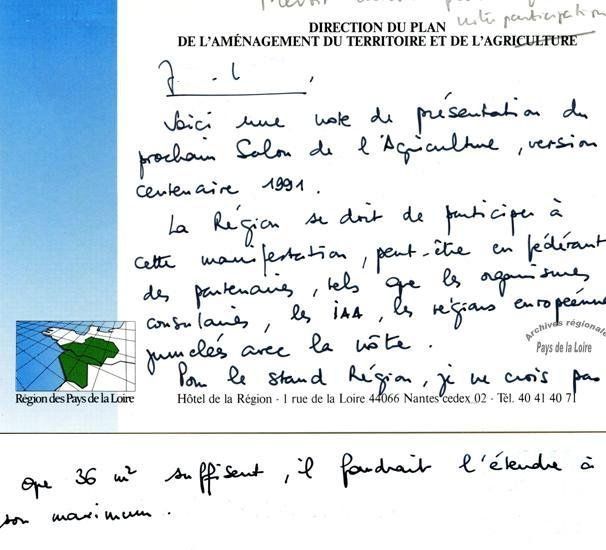 votre participation
DIRECTION DU PLAN
DE L'AMÉNAGEMENT DU TERRITOIRE ET DE L'AGRICULTURE
J. - L ,
Voici une note de présentation du
prochain Salon de l'Agriculture, version
centenaire 1991.
La Région se doit de participer à
cette manifestation, peut-être en fédérant
des partenaires, tels que les organismes
consulaires, les IAA, les régions européennes
jumelées avec la nôtre.
Archives régionales
Pays de la Loire
Pour le stand Région, je ne crois pas
Région des Pays de la Loire
Hôtel de la Région - 1 rue de la Loire 44066 Nantes cedex 02 - Tél. 40 41 40 71
que 36 m² suffisent, il faudrait l'étendre à
son maximum.